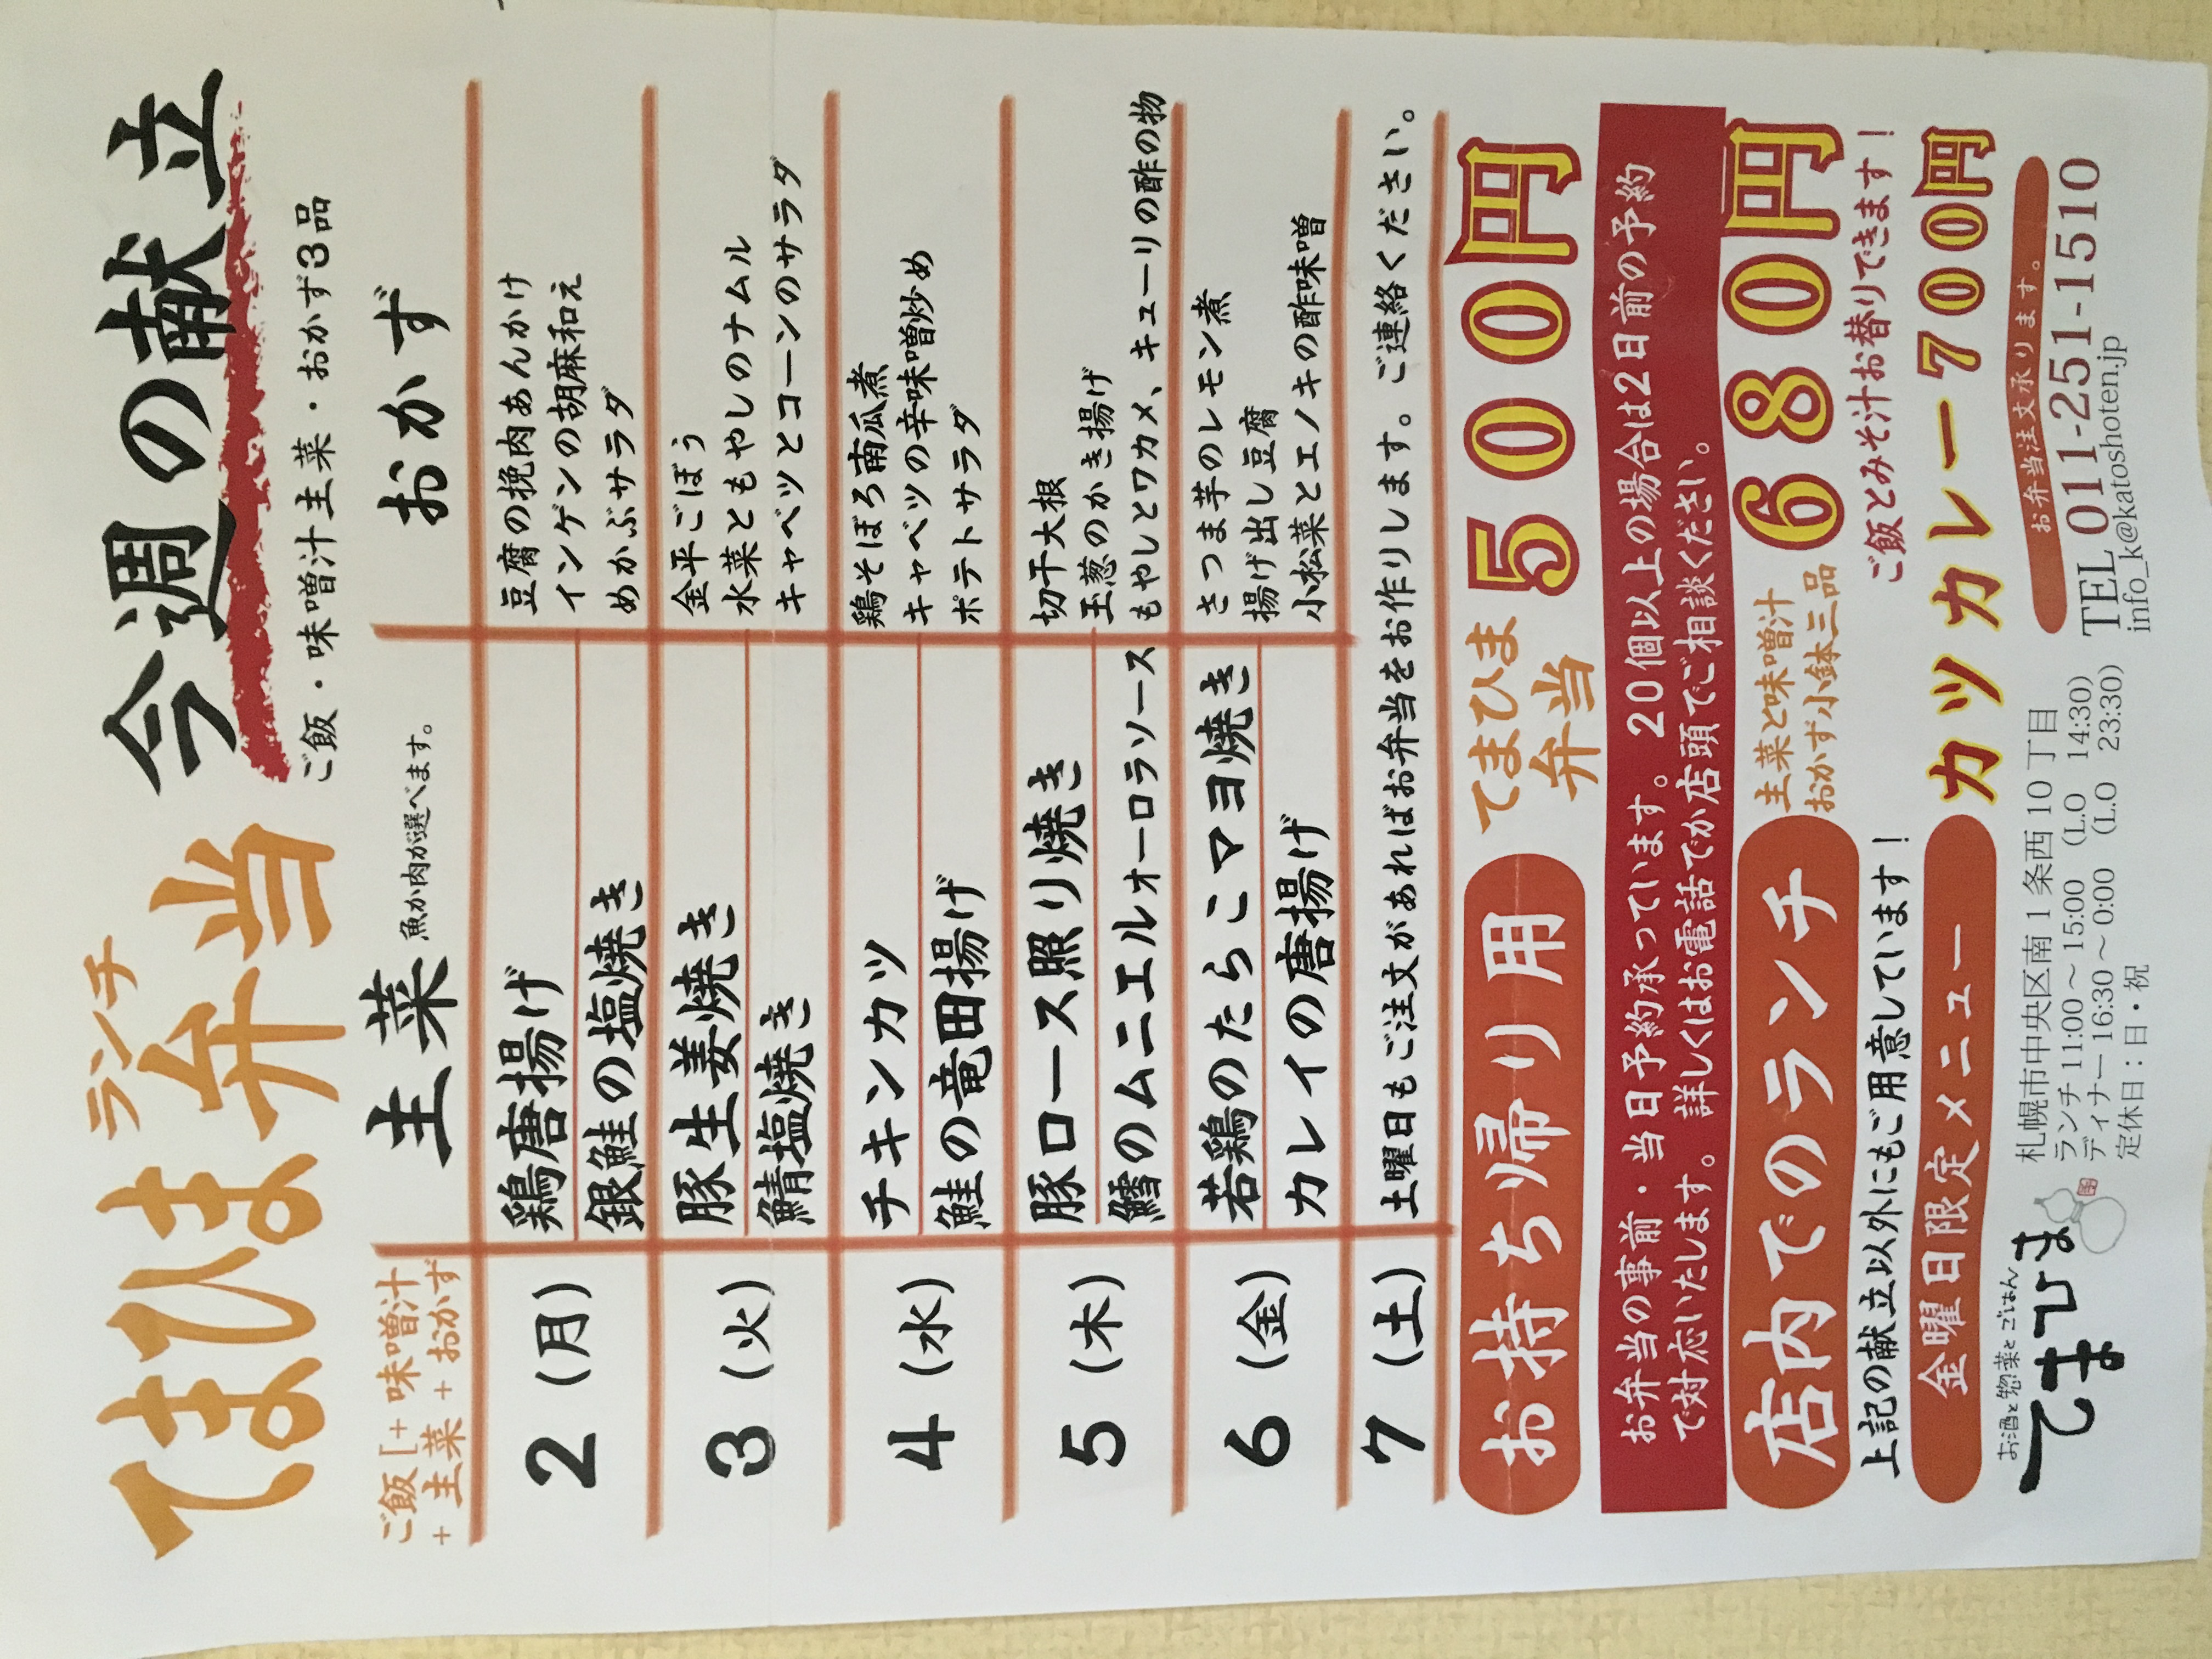 てまひま
ランチ
弁当
今週の献立
ご飯・味噌汁主菜・おかず3品
ご飯[+味噌汁
+主菜+おかず
主菜 魚か肉が選べます。
おかず
2(月)
鶏唐揚げ
銀鮭の塩焼き
豆腐の挽肉あんかけ
インゲンの胡麻和え
めかぶサラダ
3(火)
豚生姜焼き
鯖塩焼き
金平ごぼう
水菜ともやしのナムル
キャベツとコーンのサラダ
4(水)
チキンカツ
鮭の竜田揚げ
鶏そぼろ南瓜煮
キャベツの辛味噌炒め
ポテトサラダ
5(木)
豚ロース照り焼き
鱈のムニエルオーロラソース
切干大根
玉葱のかき揚げ
もやしとワカメ、キューリの酢の物
6(金)
若鶏のたらこマヨ焼き
カレイの唐揚げ
さつま芋のレモン煮
揚げ出し豆腐
小松菜とエノキの酢味噌
7(土)
土曜日もご注文があればお弁当をお作りします。ご連絡ください。
お持ち帰り用
てまひま
弁当
500円
お弁当の事前・当日予約承っています。20個以上の場合は2日前の予約
で対応いたします。詳しくはお電話でか店頭でご相談ください。
店内でのランチ
主菜と味噌汁
おかず小鉢三品
680円
上記の献立以外にもご用意しています!
ご飯とみそ汁お替りできます!
金曜日限定メニュー
カツカレー700円
お酒と惣菜とごはん
てまひま
札幌市中央区南1条西10丁目
ランチ 11:00~15:00 (L.O 14:30)
ディナー 16:30~0:00 (L.O 23:30)
定休日:日・祝
お弁当注文承ります。
TEL 011-251-1510
info_k@katoshoten.jp